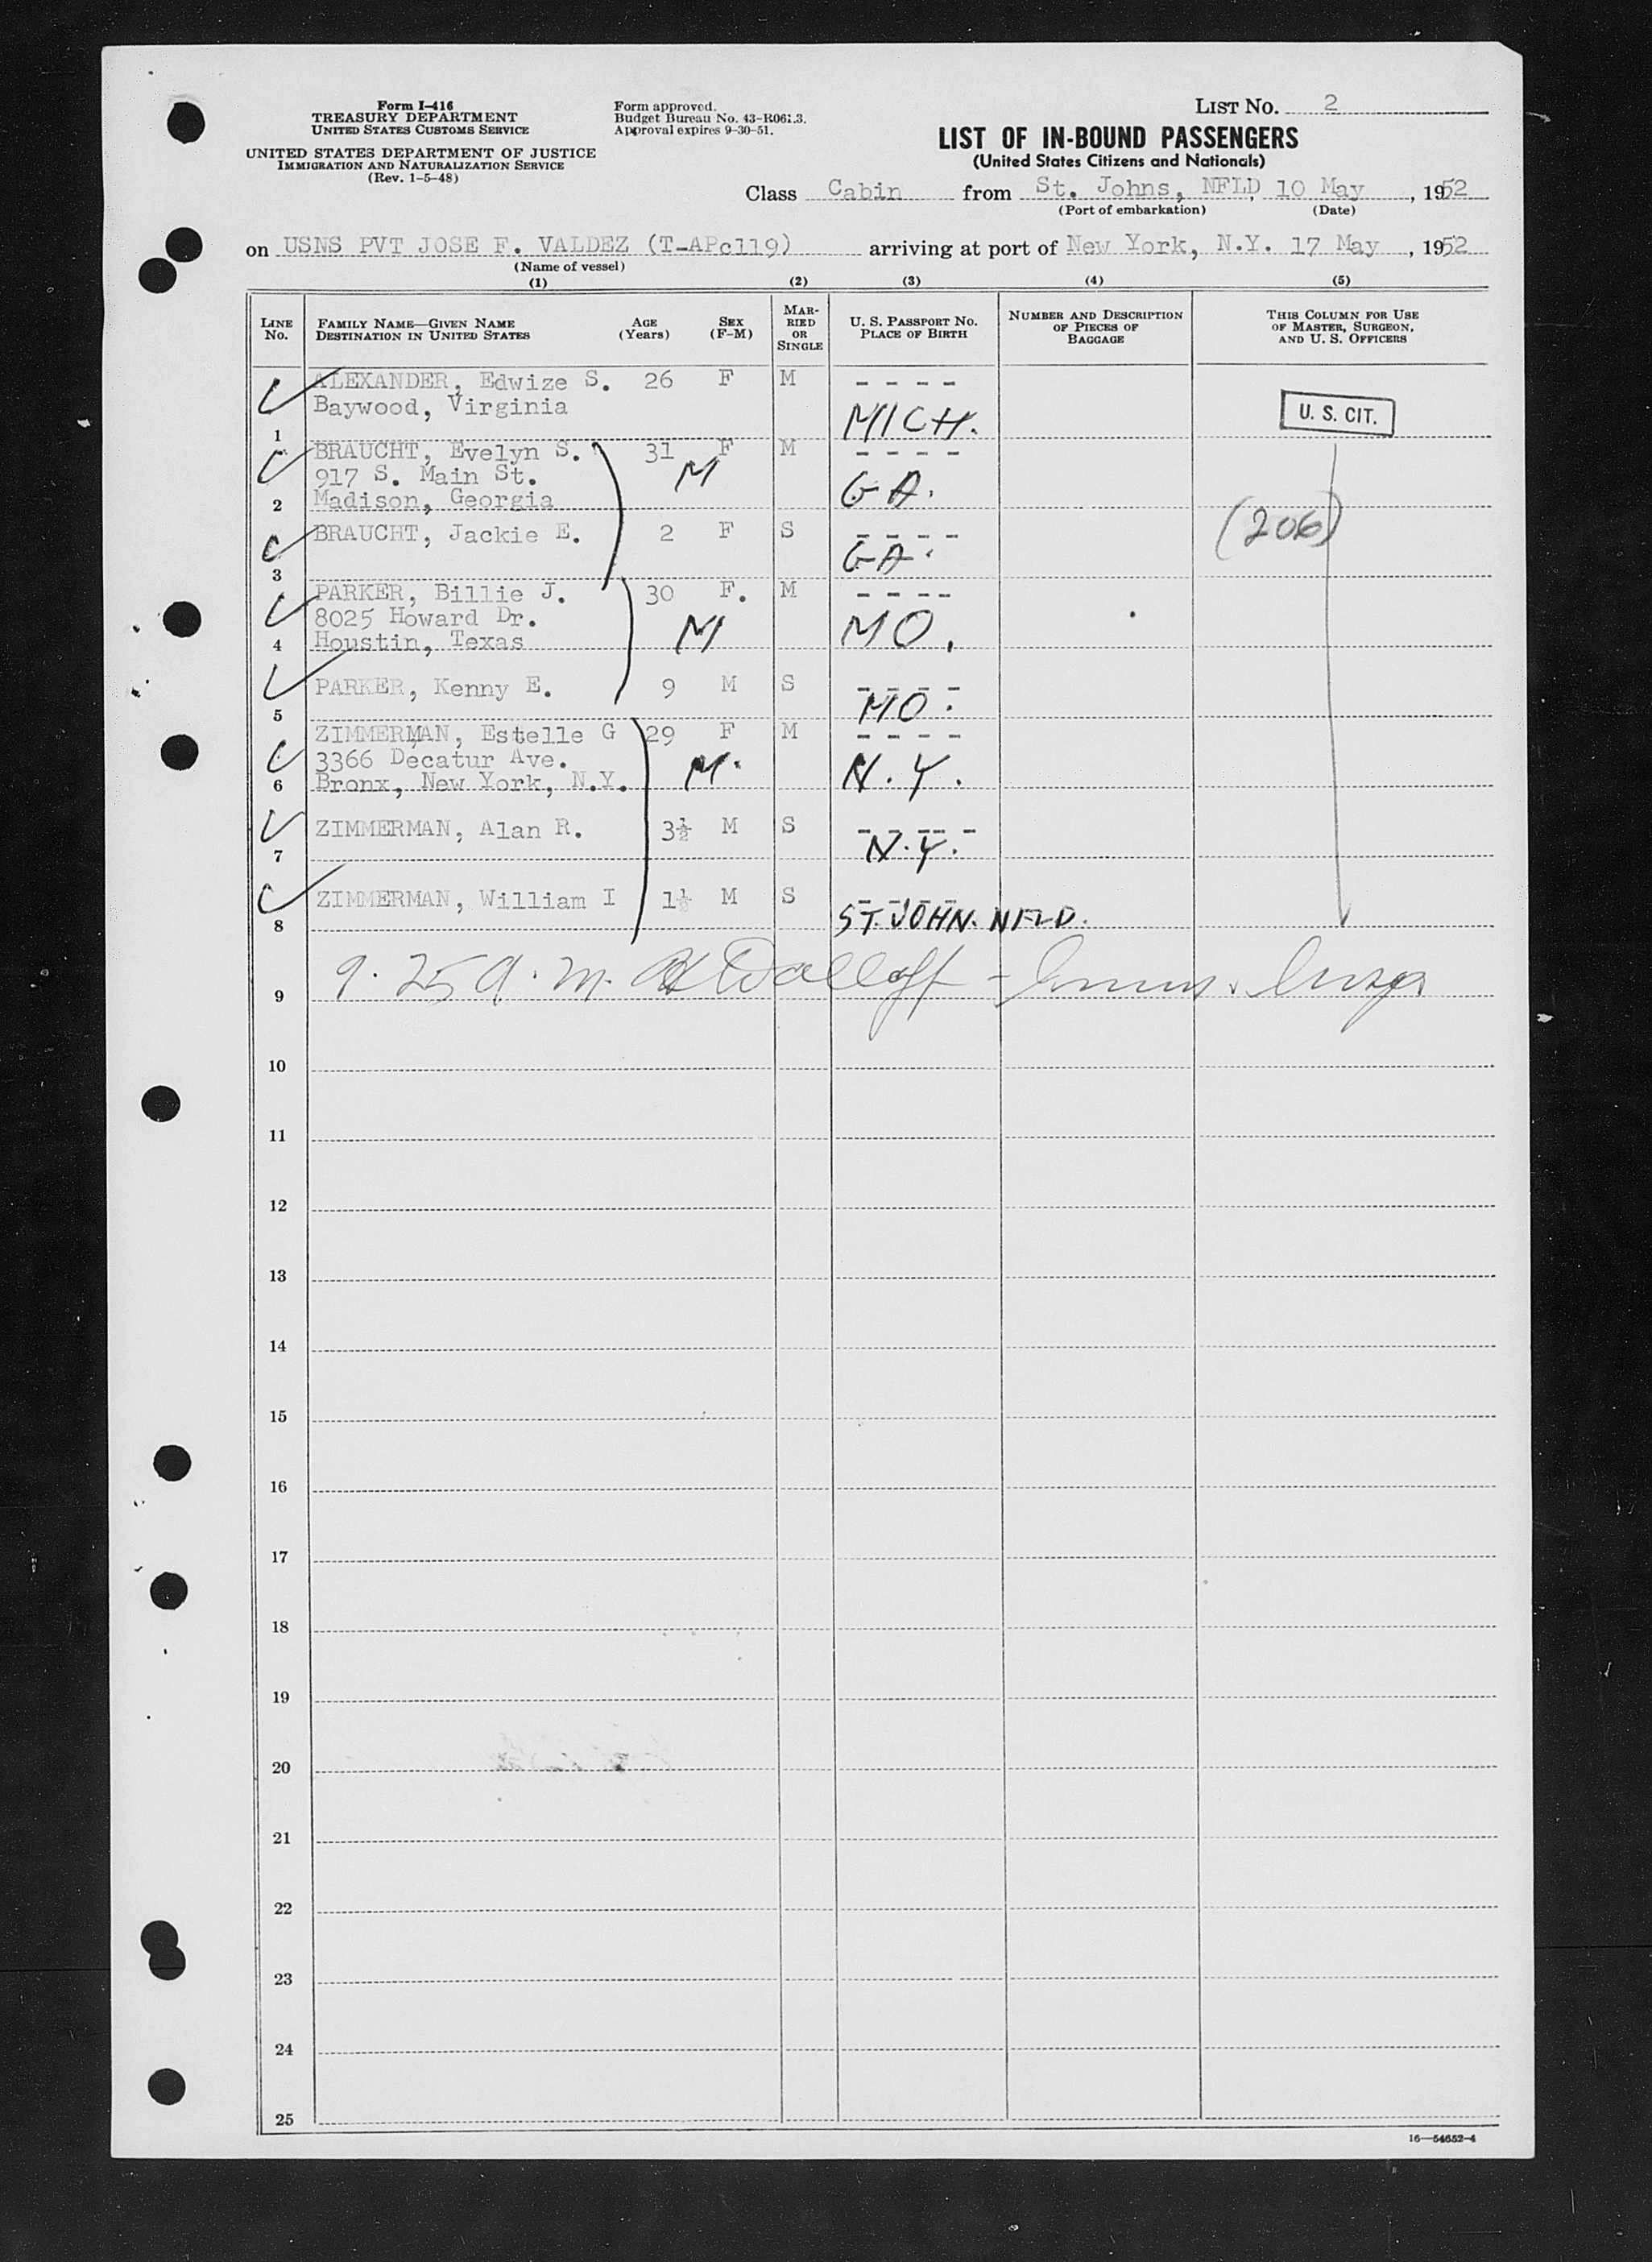 Form I-416
TREASURY DEPARTMENT
UNITED STATES CUSTOMS SERVICE
UNITED STATES DEPARTMENT OF JUSTICE
IMMIGRATION AND NATURALIZATION SERVICE
(Rev. 1-5-48)
Form approved.
Budget Bureau No. 43-R061.3.
Approval expires 9-30-51.
LIST NO. 2
LIST OF IN-BOUND PASSENGERS
(United States Citizens and Nationals)
Class Cabin from St. Johns, NFLD, 10 May, 1952
(Port of embarkation) (Date)
on USNS PVT JOSE F. VALDEZ (T-APc119) arriving at port of New York, N.Y. 17 May, 1952
(Name of vessel)
(1) (2) (3) (4) (5)
LINE NO. FAMILY NAME—GIVEN NAME DESTINATION IN UNITED STATES AGE (Years) SEX (F-M) MARRIED OR SINGLE U. S. PASSPORT NO. PLACE OF BIRTH NUMBER AND DESCRIPTION OF PIECES OF BAGGAGE THIS COLUMN FOR USE OF MASTER, SURGEON, AND U. S. OFFICERS
ALEXANDER, Edwize S. 26 F M - - - -
Baywood, Virginia MICH. U. S. CIT.
1
BRAUCHT, Evelyn S. 31 F M - - - -
917 S. Main St. M GA.
2 Madison, Georgia
BRAUCHT, Jackie E. 2 F S - - - - (206)
3 GA.
PARKER, Billie J. 30 F. M - - - -
8025 Howard Dr. M MO.
4 Houstin, Texas
PARKER, Kenny E. 9 M S - - - -
5 MO.
ZIMMERMAN, Estelle G 29 F M - - - -
3366 Decatur Ave. M. N.Y.
6 Bronx, New York, N.Y.
ZIMMERMAN, Alan R. 3½ M S - - - -
7 N.Y.
ZIMMERMAN, William I M S - - - -
8 ST. JOHN. NFLD.
9 9.25 A.M.
10
11
12
13
14
15
16
17
18
19
20
21
22
23
24
25
16—54652-4